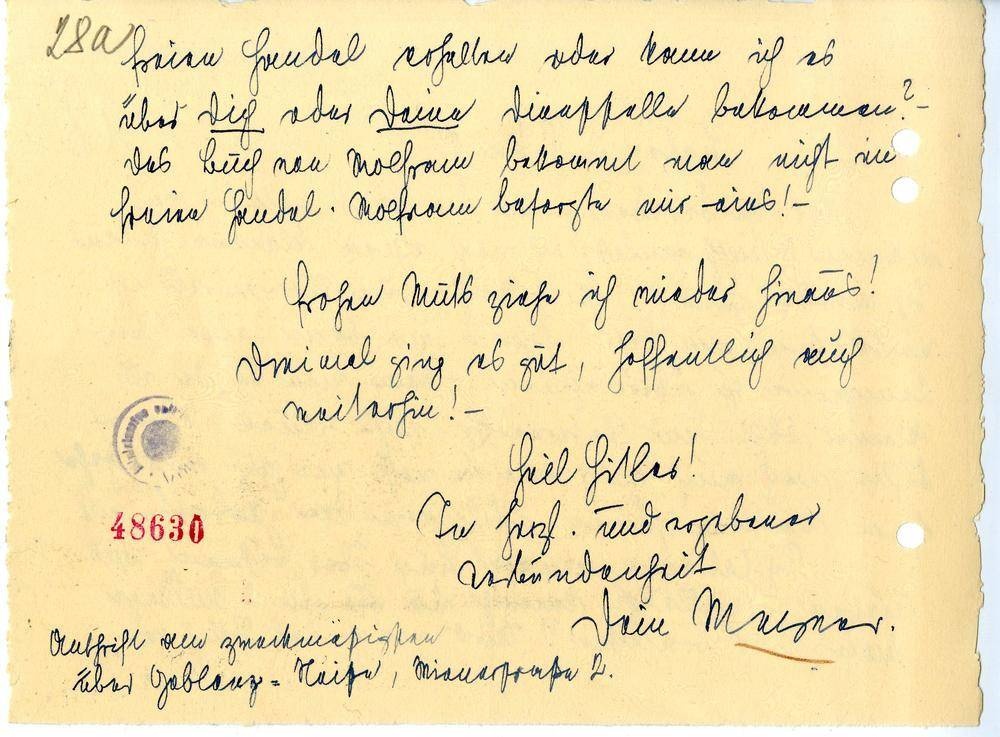 28a
freien Handel erhalten oder kann ich es
über Dich oder Deine Dienststelle bekommen?-
Das Buch von Wolfram bekommt man nicht im
freien Handel. Wolfram besorgte mir eins!-
Frohen Muts ziehe ich wieder hinaus!
Dreimal ging es gut, hoffentlich auch
weiterhin!-
Heil Hitler!
In herzl. und ergebener
Verbundenheit
Dein
48630
Anschrift am zweckmäßigsten
über Gablonz-Neiße, Wienerstraße 2.